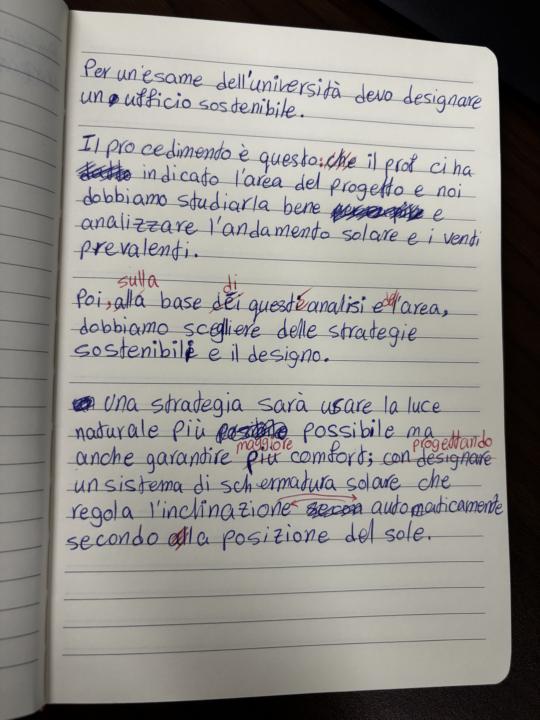 Per un'esame dell'università devo designare
un ufficio sostenibile.
Il procedimento è questo: che il prof ci ha
indicato l'area del progetto e noi
dobbiamo studiarla bene e
analizzare l'andamento solare e i venti
prevalenti.
sulla di
Poi, alla base dei questi analisi e dell'area,
dobbiamo scegliere delle strategie
sostenibili e il designo.
Una strategia sarà usare la luce
naturale più possibile ma
maggiore progettando
anche garantire più comfort; con designare
un sistema di schermatura solare che
regola l'inclinazione automaticamente
secondo la posizione del sole.